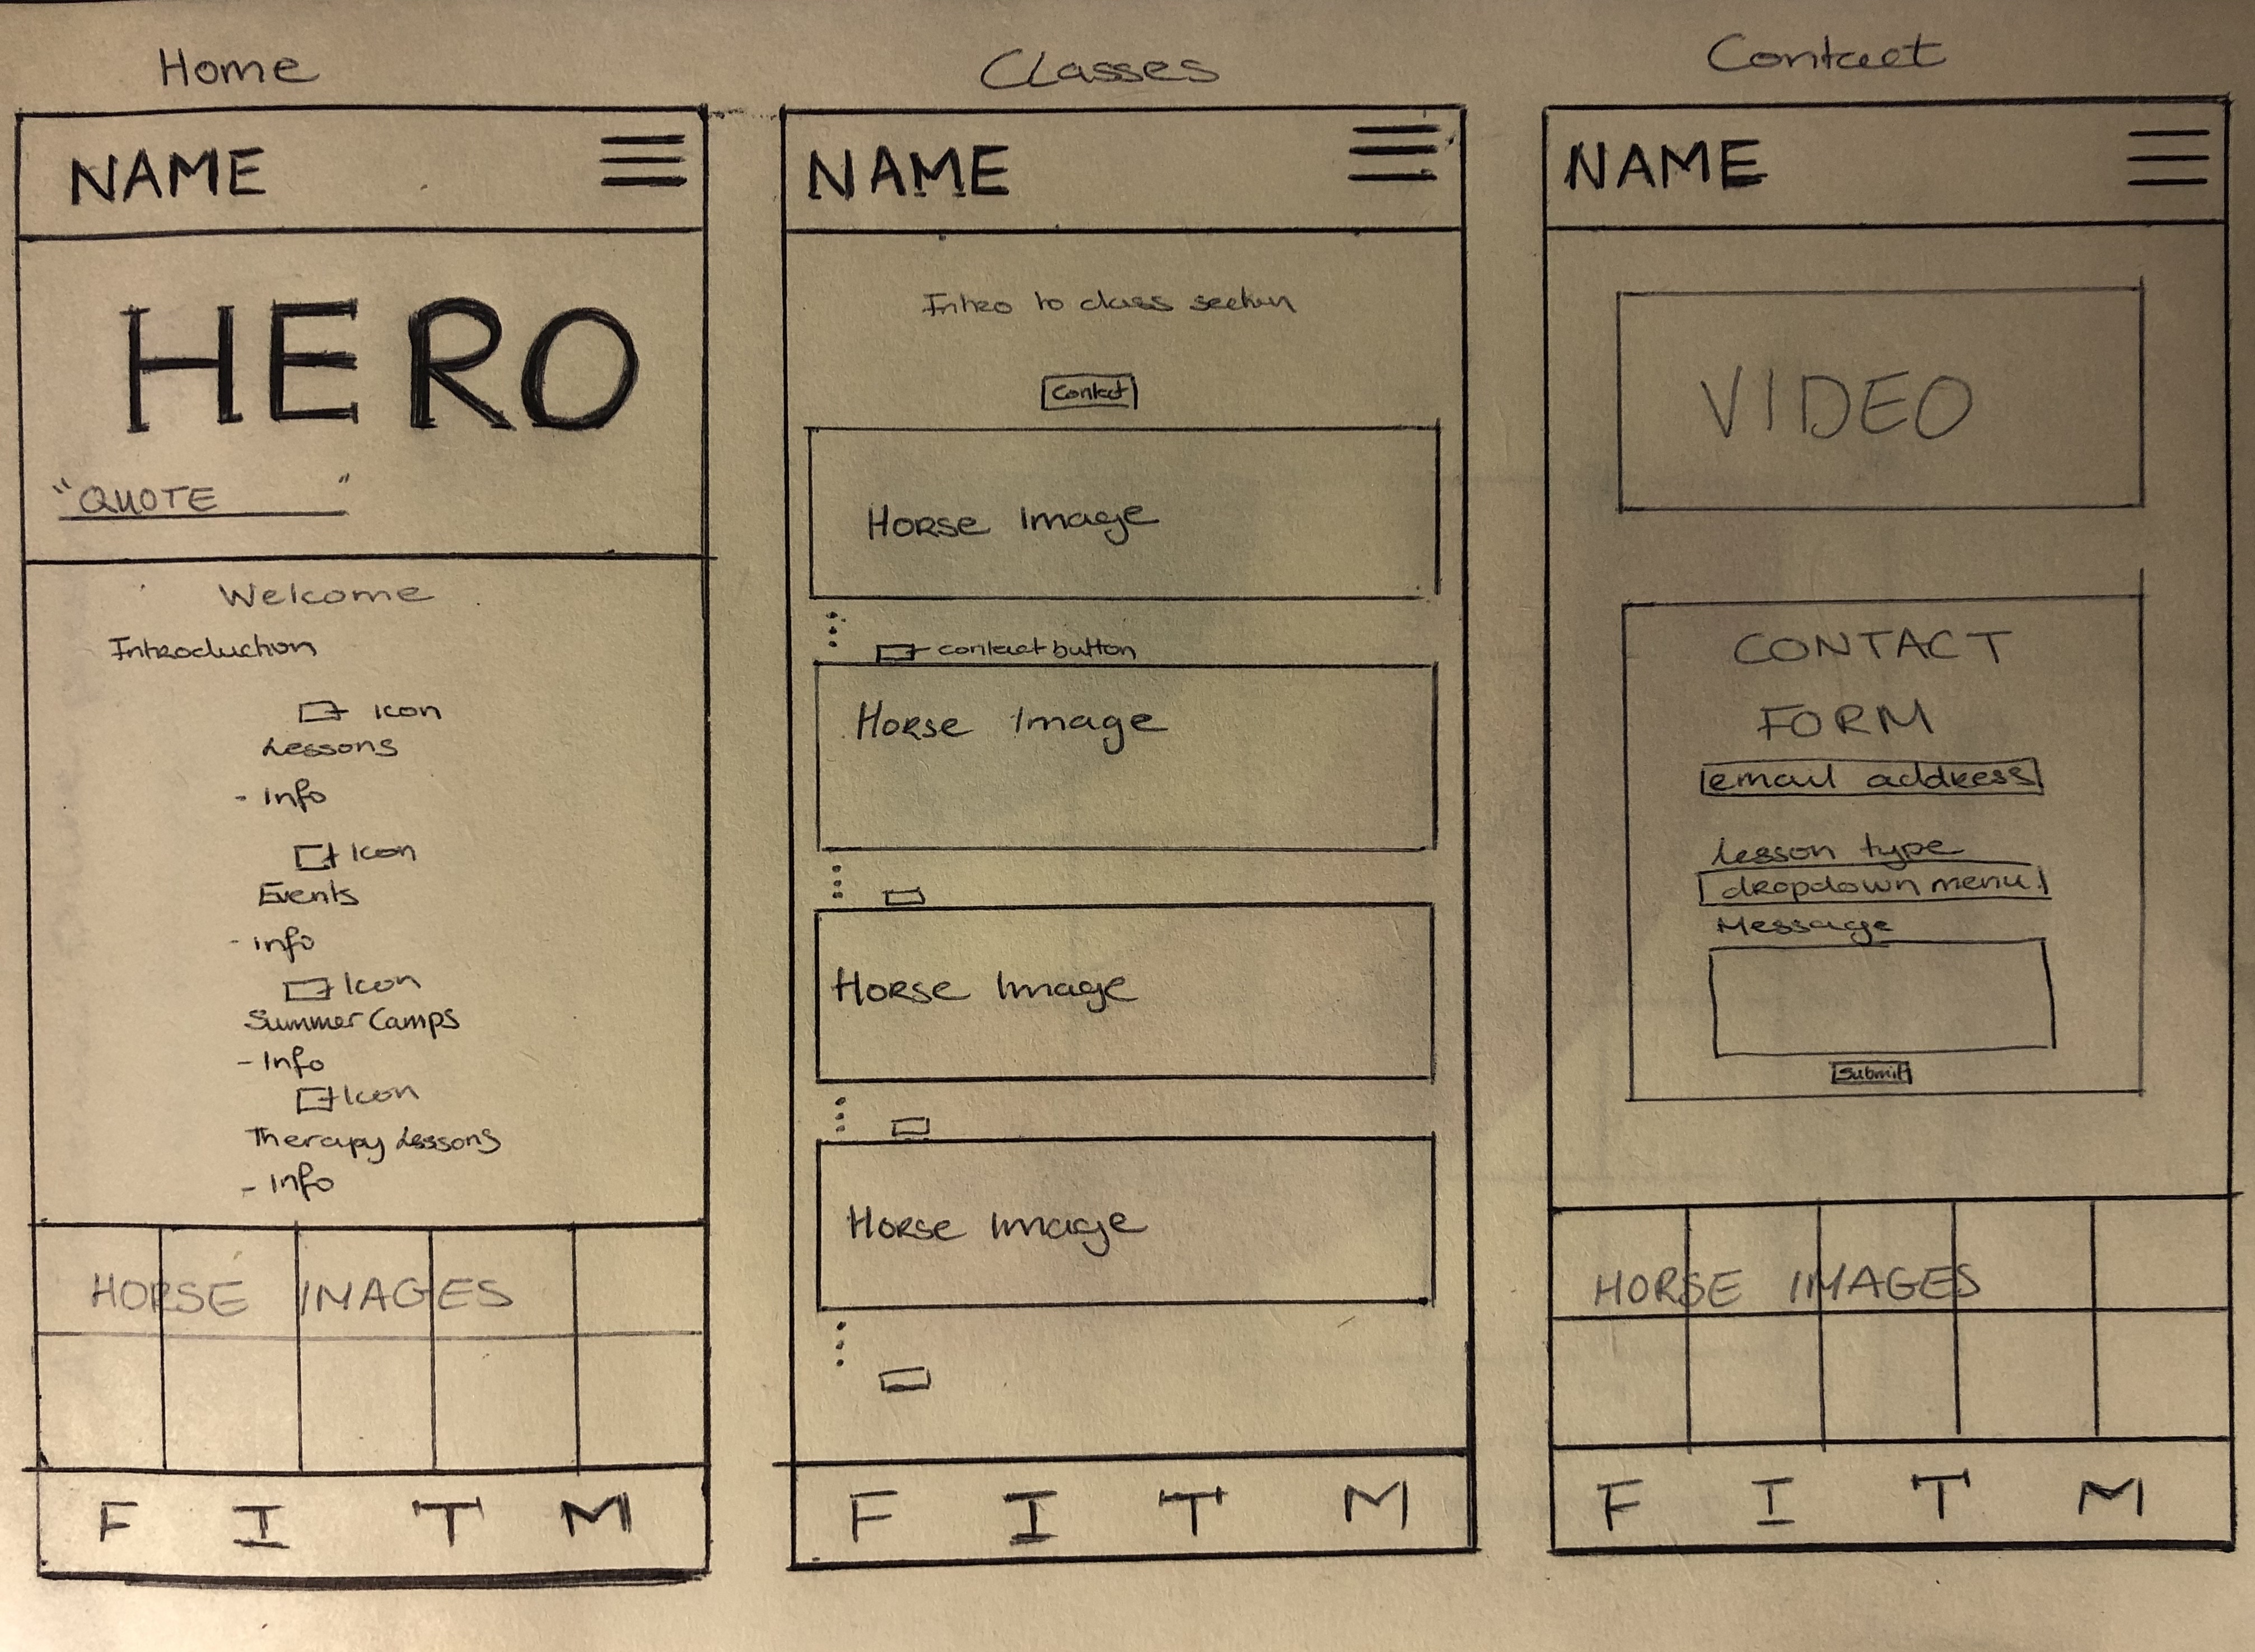 Home
NAME
HERO
"QUOTE "
Welcome
Introduction
Icon
Lessons
- Info
Icon
Events
- Info
Icon
Summer Camps
- Info
Icon
Therapy Lessons
- Info
HORSE IMAGES
F I T M
Classes
NAME
Intro to class section
Contact
Horse Image
contact button
Horse Image
Horse Image
Horse Image
F I T M
Contact
NAME
VIDEO
CONTACT
FORM
email address
Lesson type
dropdown menu
Message
Submit
HORSE IMAGES
F I T M